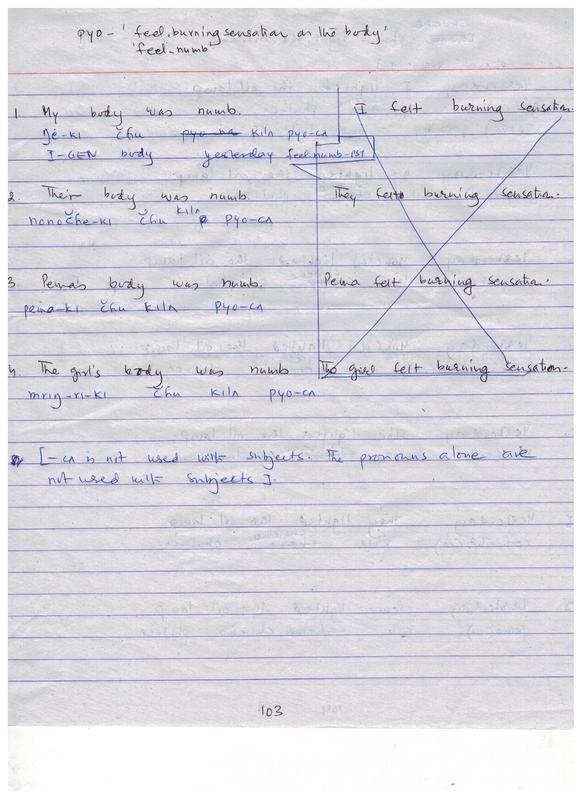 pyo - 'feel, burning sensation on the body'
'feel-numb'
1 My body was numb. I felt burning sensation.
ŋé-ki čhu kilʌ pyo-cʌ
I-GEN body yesterday feel.numb-PST
2. Their body was numb. They felt burning sensation.
nonočhe-ki čhu kilʌ pyo-cʌ
3 Pema's body was numb. Pema felt burning sensation.
pema-ki čhu kilʌ pyo-cʌ
4. The girl's body was numb The girl felt burning sensation.
mriŋ-ri-ki čhu kilʌ pyo-cʌ
[-cʌ is not used with subjects. The pronouns alone are
not used with subjects].
103